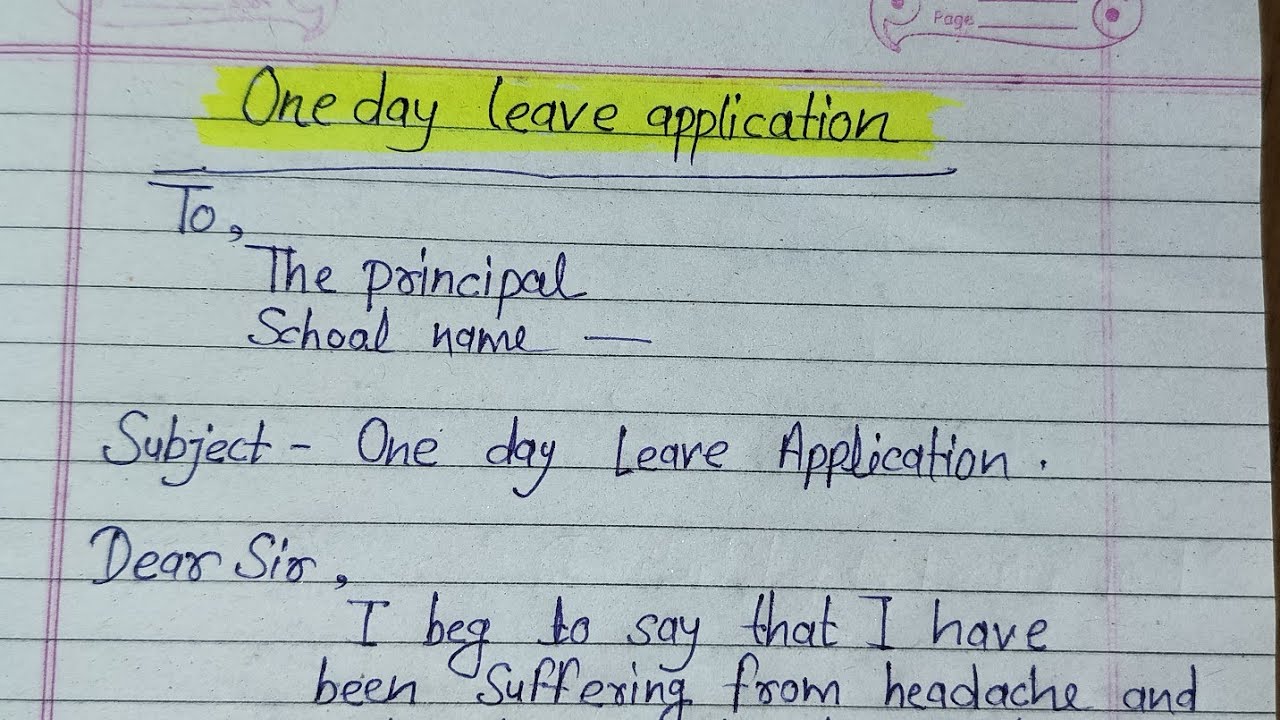 Page
One day leave application
To,
The principal
School name —
Subject - One day Leave Application.
Dear Sir,
I beg to say that I have
been suffering from headache and